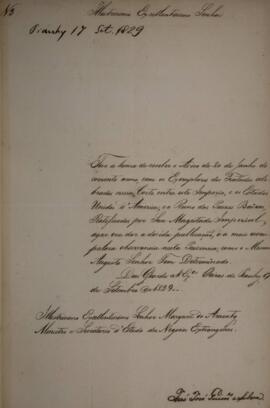 N5
Illustrissimo Excellentissimo Senhor
Piauhy 17 Set. 1829
Tive a honra de receber o Aviso de 20 de Junho do
corrente anno, com os Exemplares dos Tratados cele-
brados nessa Corte entre este Imperio, e os Estados
Unidos d'America, e o Reino dos Paizes Baixos,
Ratificados por Sua Magestade Imperial,
a devida publicação, e a mais exacta
observancia nesta Provincia, como o Mesmo
Augusto Senhor Tem Determinado.
Deos Guarde a V. Exª. Oeiras do Piauhy 17
de Setembro de 1829.
Illustrissimo Excellentissimo Senhor Marquez de Aracaty
Ministro e Secretario d'Estado dos Negocios Estrangeiros.
João José